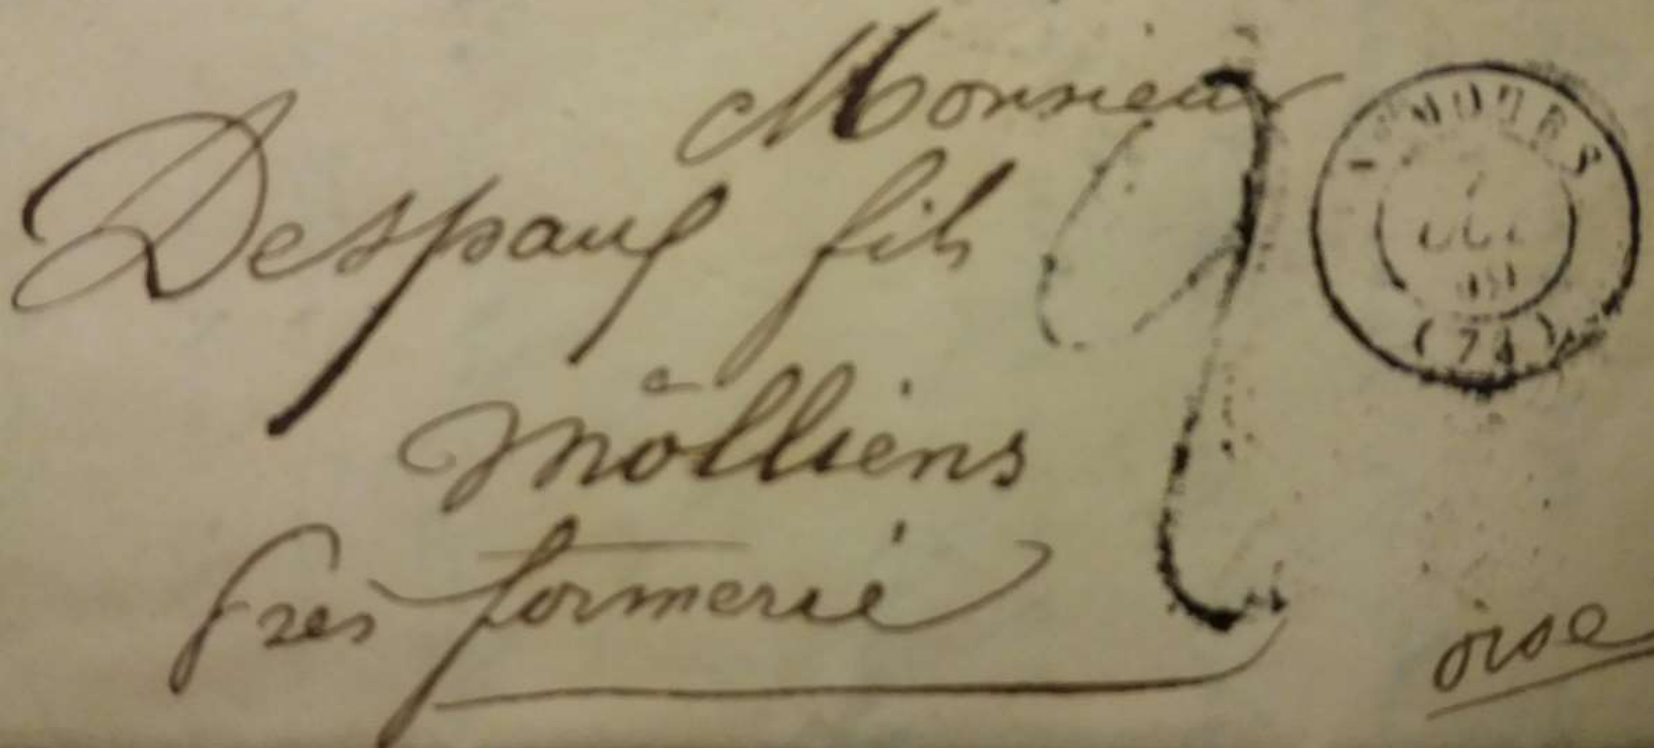 Monsieur
Despaux fils
a
Molliens
Pres formerie
oise
2
(73)